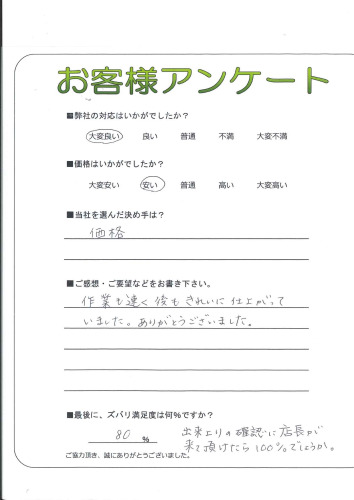 お客様アンケート
■弊社の対応はいかがでしたか？
大変良い 良い 普通 不満 大変不満
■価格はいかがでしたか？
大変安い 安い 普通 高い 大変高い
■当社を選んだ決め手は？
価格
■ご感想・ご要望などをお書き下さい。
作業も速く後もきれいに仕上がって
いました。ありがとうございました。
■最後に、ズバリ満足度は何％ですか？
80 ％
出来上りの確認に店長が
来て頂けたら100％でしょうか。
ご協力頂き、誠にありがとうございました。